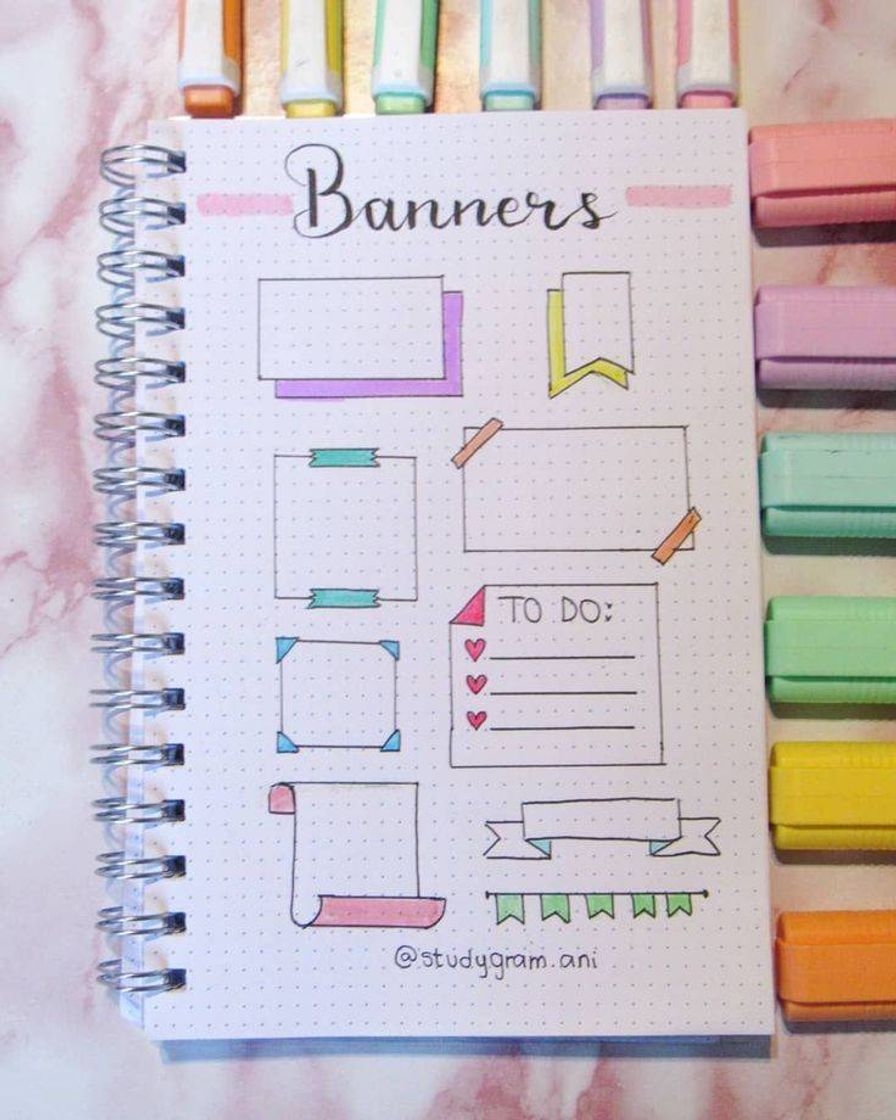 Banners
TO DO:
@studygram.ani